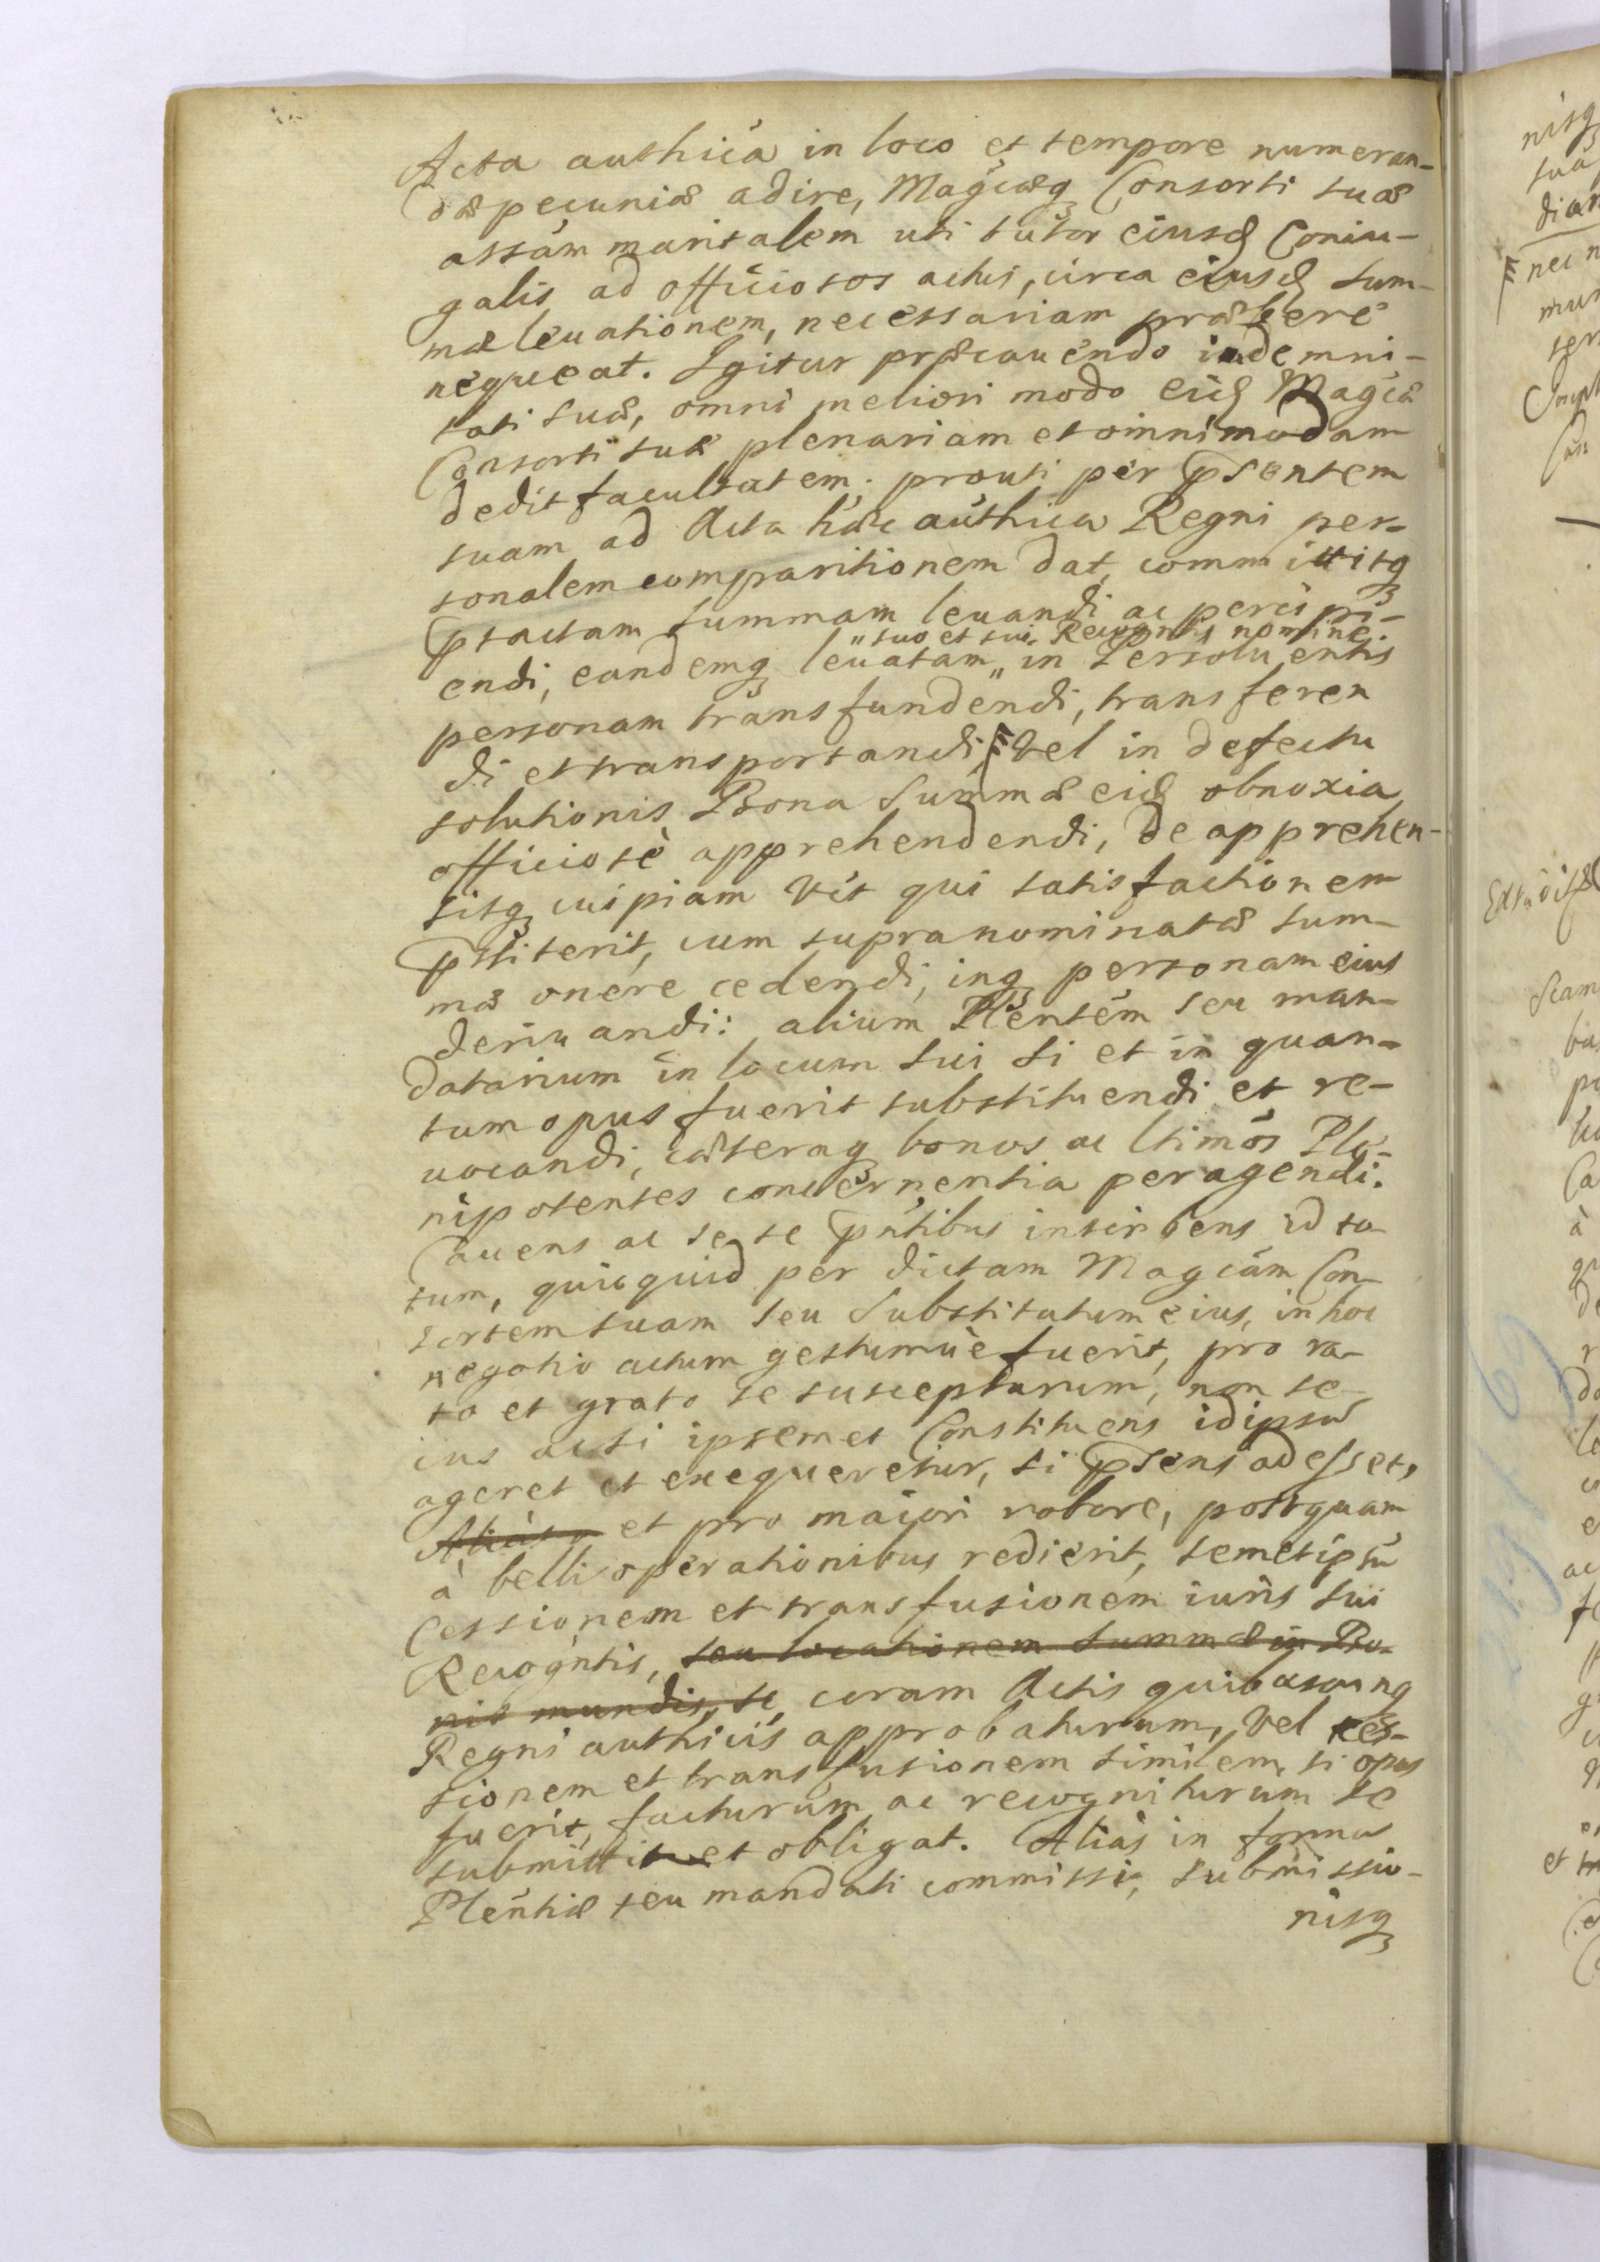 Acta authica in loco et tempore numeran-
dæ pecuniæ adire, Magcæq Consorti suæ
assam maritalem uti tutor eiusd Coniu-
galis ad officiosos actus, circa eiusd sum-
mæ leuationem, necessariam præbere
nequeat. Igitur præcauendo indemni-
tati suæ, omni meliori modo eid Magcæ
Consorti suæ plenariam et omnimodam
dedit facultatem. prouti per psentem
suam ad Acta hæc authica Regni per-
sonalem comparitionem dat, committitq
ptactam summam leuandi ac percipi-
suo et sui Recogntis nomine
endi, eandemq leuatam in Persoluentis
personam transfundendi, transferen
di et transportandi, Vel in defectu
solutionis Bona Summæ eid obnoxia
officiosè apprehendendi, de apprehen-
sisq cuipiam vti qui satisfactionem
pstiterit, cum supranominatæ sum-
mæ onere cedendi, inq personam eius
deriuandi: alium Plentem seu man-
datarium in locum sui si et in quan-
tum opus fuerit substituendi et re-
uocandi, cæteraq bonos ac ltimos Ple-
nipotentes concernentia peragendi.
Cauens ac sese pntibus inscribens id to-
tum, quicquid per dictam Magcam Con-
sortem suam seu Substitutum eius, in hoc
negotio actum gestumuè fuerit, pro ra-
to et grato se suscepturum, non se-
cus acsi ipsemet Constituens idipsum
ageret et exequeretur, si psens adesset,
et pro maiori robore, postquam
à belli operationibus redierit, semetipsu
Cessionem et transfusionem iuris sui
Recogntis, seu locationem summæ in Bo-
nis mundis, se, coram Actis quibuscunq
Regni authicis approbaturum, Vel ces-
sionem et transfusionem similem, si opus
fuerit, facturum ac recogniturum se
submittit et obligat. Alias in forma
Plentiæ seu mandati commissi, submissio-
nisq